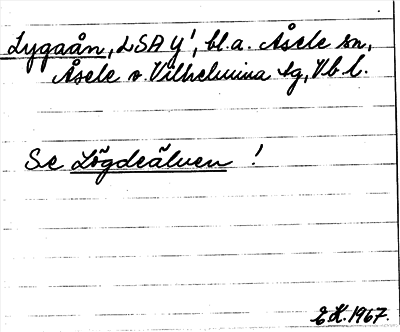 Lygaån, LSA y', bl.a. Åsele sn,
Åsele o. Vilhelmina tg, Vb l.
Se Lögdeälven !
EK. 1967.